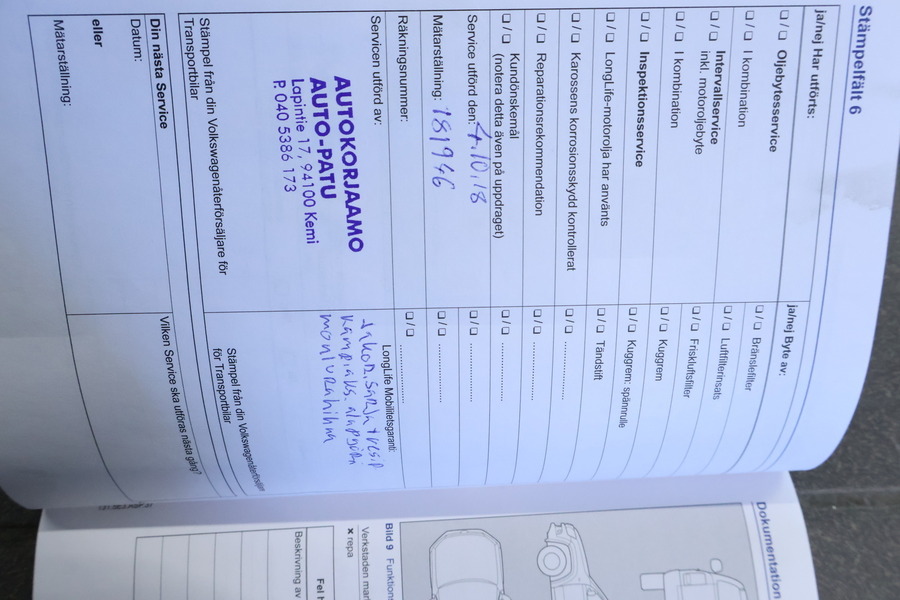 Stämpelfält 6
ja/nej Har utförts:
❑ / ❑ Oljebytesservice
❑ / ❑ I kombination
❑ / ❑ Intervallservice
inkl. motoroljebyte
❑ / ❑ I kombination
❑ / ❑ Inspektionsservice
❑ / ❑ LongLife-motorolja har använts
❑ / ❑ Karossens korrosionsskydd kontrollerat
❑ / ❑ Reparationsrekommendation
❑ / ❑ Kundönskemål
(notera detta även på uppdraget)
Service utförd den: 4.10.18
Mätarställning: 181946
Räkningsnummer:
Servicen utförd av:
AUTOKORJAAMO
AUTO-PATU
Lapintie 17, 94100 Kemi
P. 040 5386 173
Stämpel från din Volkswagenåterförsäljare för
Transportbilar
Din nästa Service
Datum:
eller
Mätarställning:
ja/nej Byte av:
❑ / ❑ Bränslefilter
❑ / ❑ Luftfilterinsats
❑ / ❑ Friskluftsfilter
❑ / ❑ Kuggrem
❑ / ❑ Kuggrem: spännrulle
❑ / ❑ Tändstift
❑ / ❑ ................
❑ / ❑ ................
❑ / ❑ ................
❑ / ❑ ................
❑ / ❑ ................
❑ / ❑ ................
LongLife Mobilitetsgaranti:
Stämpel från din Volkswagenåterförsäljare
för Transportbilar
Vilken Service ska utföras nästa gång?
Dokumentation
Bild 9 Funktions
Verkstaden mar
x repa
Fel h
Beskrivning av